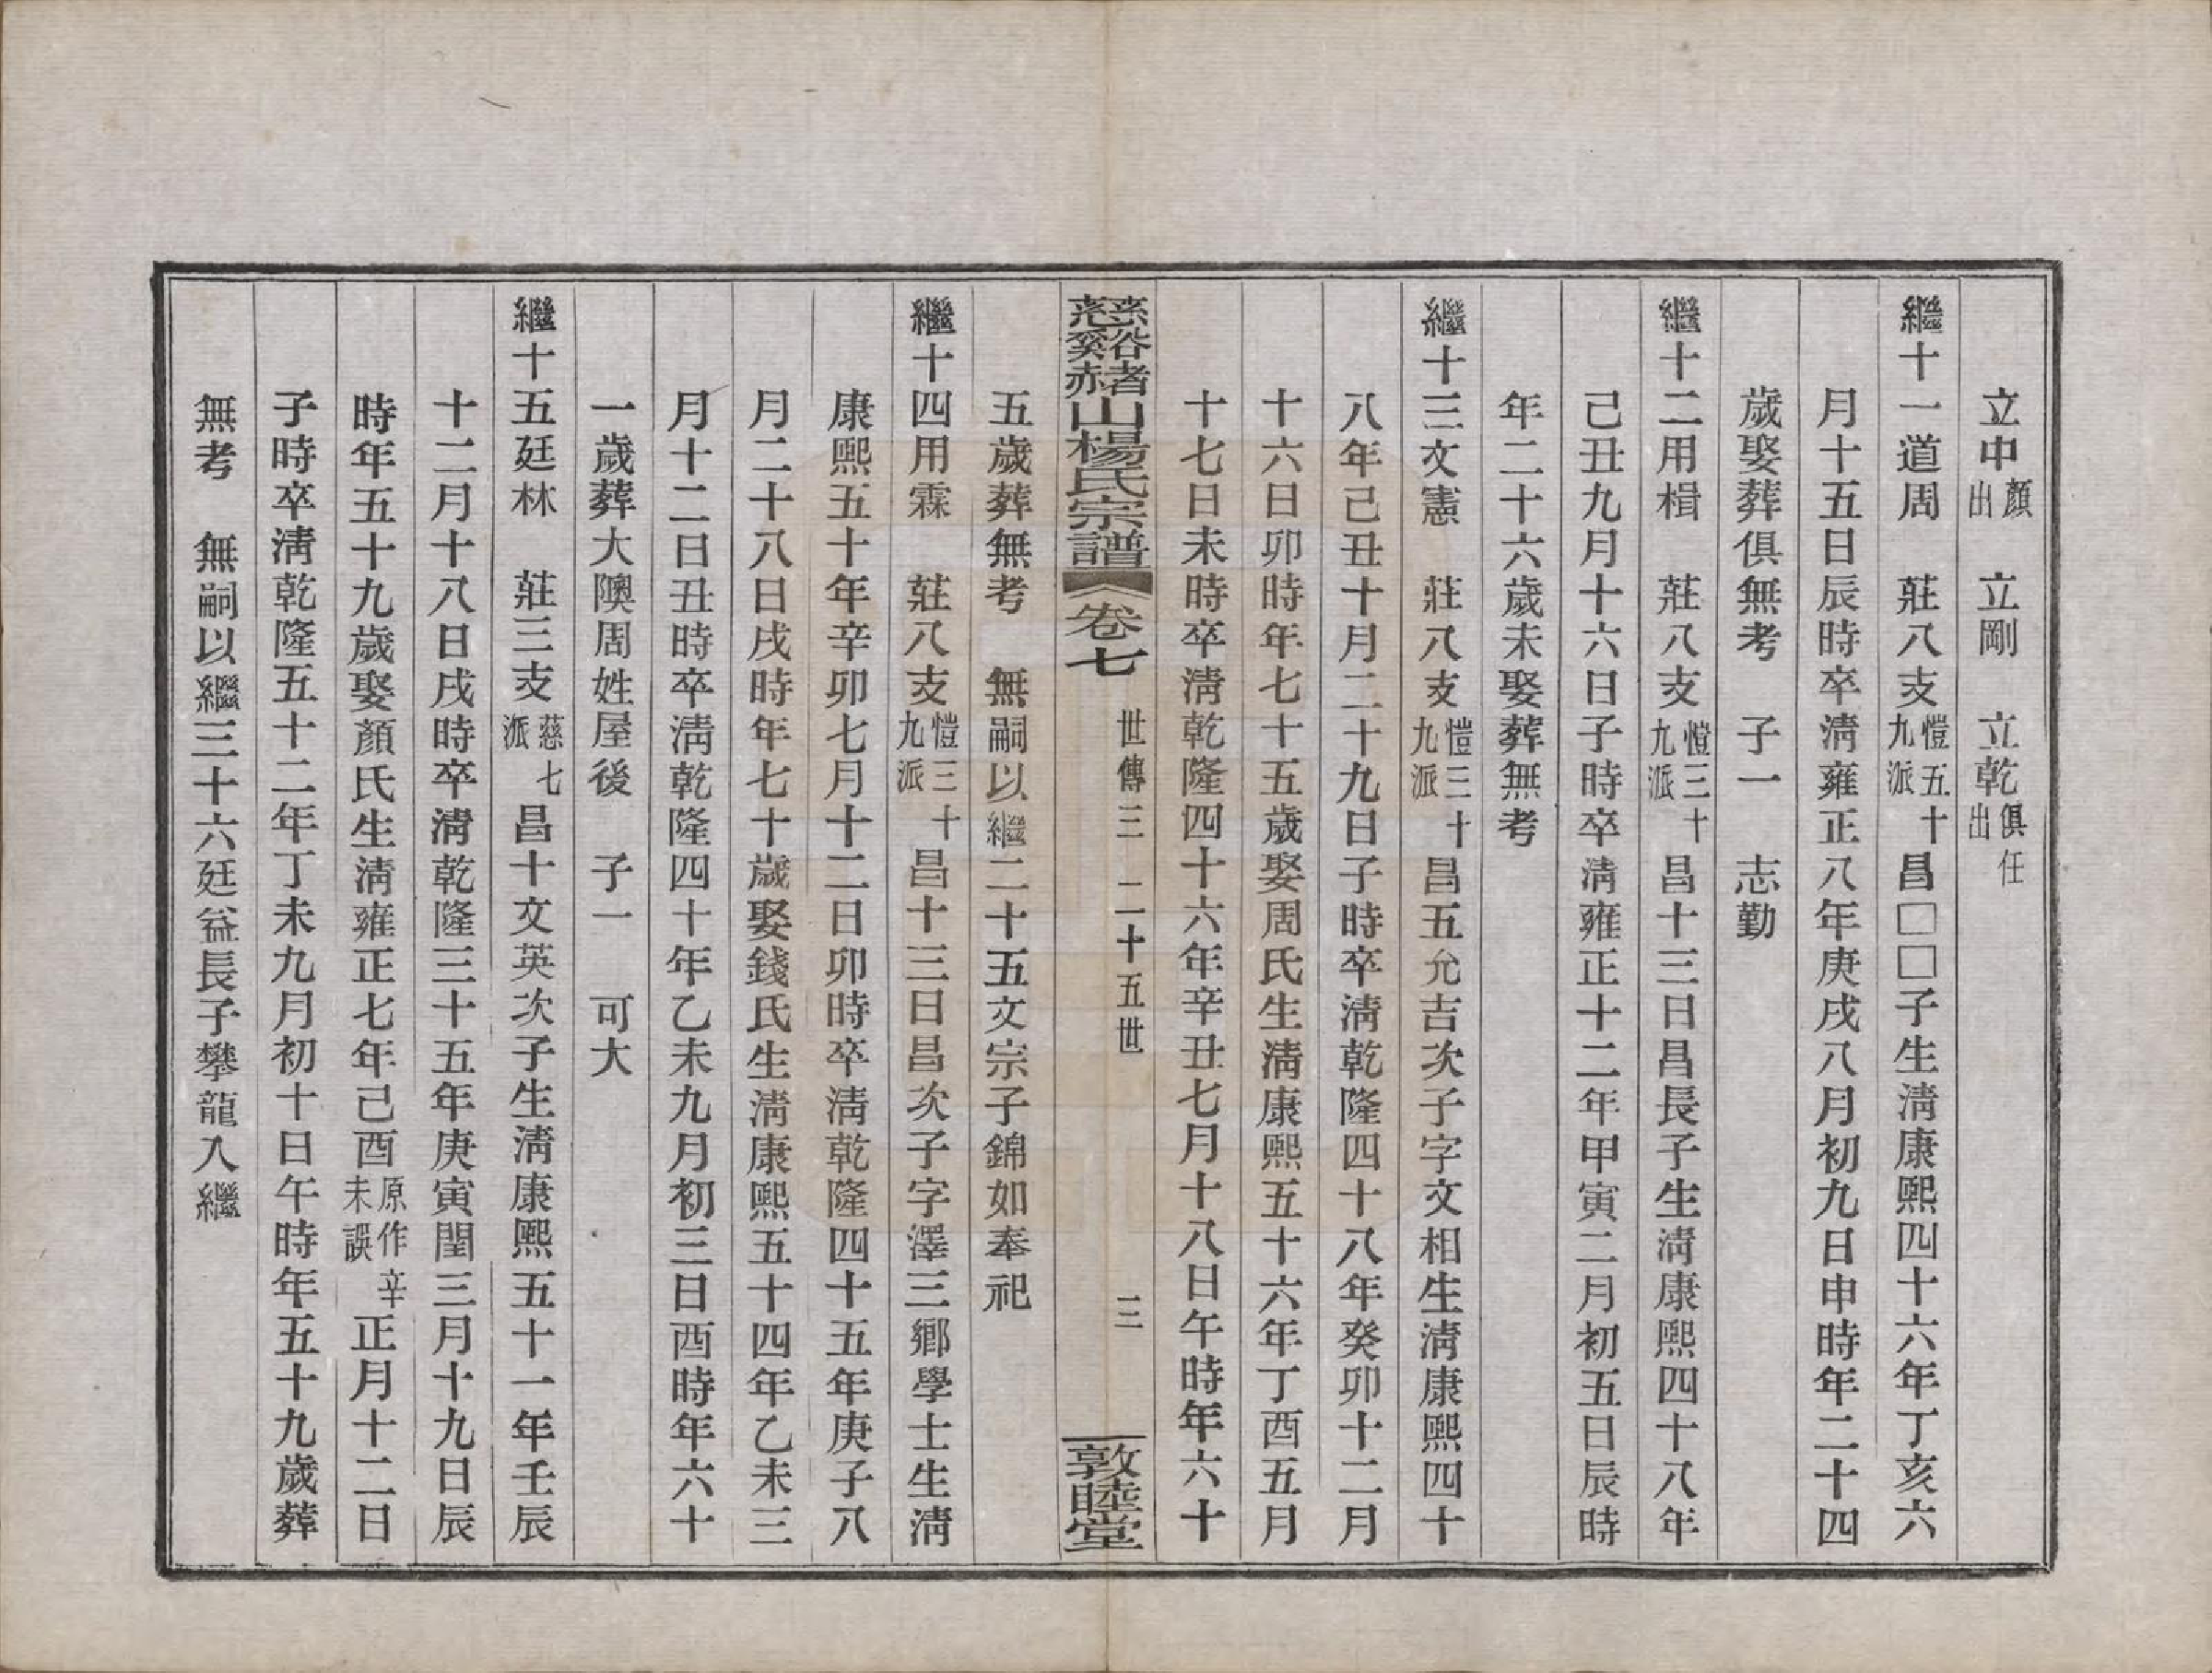 立中顏出　立剛　立乾俱任出
繼十一道周　莊八支愷五十九派昌□□子生淸康熙四十六年丁亥六
月十五日辰時卒淸雍正八年庚戌八月初九日申時年二十四
歲娶葬俱無考　子一　志勤
繼十二用楫　莊八支愷三十九派昌十三日昌長子生淸康熙四十八年
己丑九月十六日子時卒淸雍正十二年甲寅二月初五日辰時
年二十六歲未娶葬無考
繼十三文憲　莊八支愷三十九派昌五允吉次子字文相生淸康熙四十
八年己丑十月二十九日子時卒淸乾隆四十八年癸卯十二月
十六日卯時年七十五歲娶周氏生淸康熙五十六年丁酉五月
十七日未時卒淸乾隆四十六年辛丑七月十八日午時年六十
慈谿赭山楊氏宗譜　卷七　世傳三　二十五世　三　敦睦堂
五歲葬無考　無嗣以繼二十五文宗子錦如奉祀
繼十四用霖　莊八支愷三十九派昌十三日昌次子字澤三鄉學士生淸
康熙五十年辛卯七月十二日卯時卒淸乾隆四十五年庚子八
月二十八日戌時年七十歲娶錢氏生淸康熙五十四年乙未三
月十二日丑時卒淸乾隆四十年乙未九月初三日酉時年六十
一歲葬大隩周姓屋後　子一　可大
繼十五廷林　莊三支慈七派昌十文英次子生淸康熙五十一年壬辰
十二月十八日戌時卒淸乾隆三十五年庚寅閏三月十九日辰
時年五十九歲娶顏氏生淸雍正七年己酉原作辛未誤正月十二日
子時卒淸乾隆五十二年丁未九月初十日午時年五十九歲葬
無考　無嗣以繼三十六廷益長子攀龍入繼